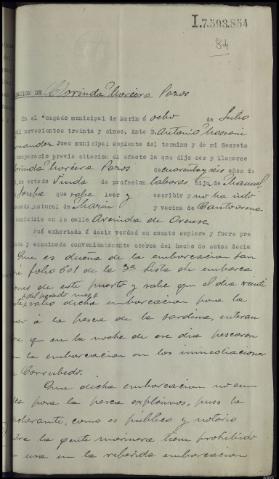 I.7.593.854
84
Clorinda Moreira Pazos
En el Juzgado municipal de Marin á ocho de Julio
mil novecientos treinta y cinco. Ante D. Antonio
Juez municipal suplente del termino y de mi Secreto
compareció previa citacion al efecto la que dijo ser y llamarse
Clorinda Moreira Pazos de cuarenta y seis años de
de estado Viuda de profesion labores hija de Manuel
que sabe leer y escribir y no ha sido
natural de Marin y vecina de Cantoarena
domicilio en la calle Avenida de Orense
Fué exhortada á decir verdad en cuanto expiere y fuere pre
y examinada convenientemente acerca del hecho de autos decla
Que es dueña de la embarcacion San
folio 601 de la 3ª lista de embarca
de este puerto y sabe que el dia veinte
dicha embarcacion para la
á la pesca de la sardina,
que en la noche de ese dia pescaron
la embarcacion en las inmediaciones
Que dicha embarcacion no em
para la pesca explosivos, pues la
como es publico y notorio
la gente marinera tiene prohibido
su uso en la referida embarcacion